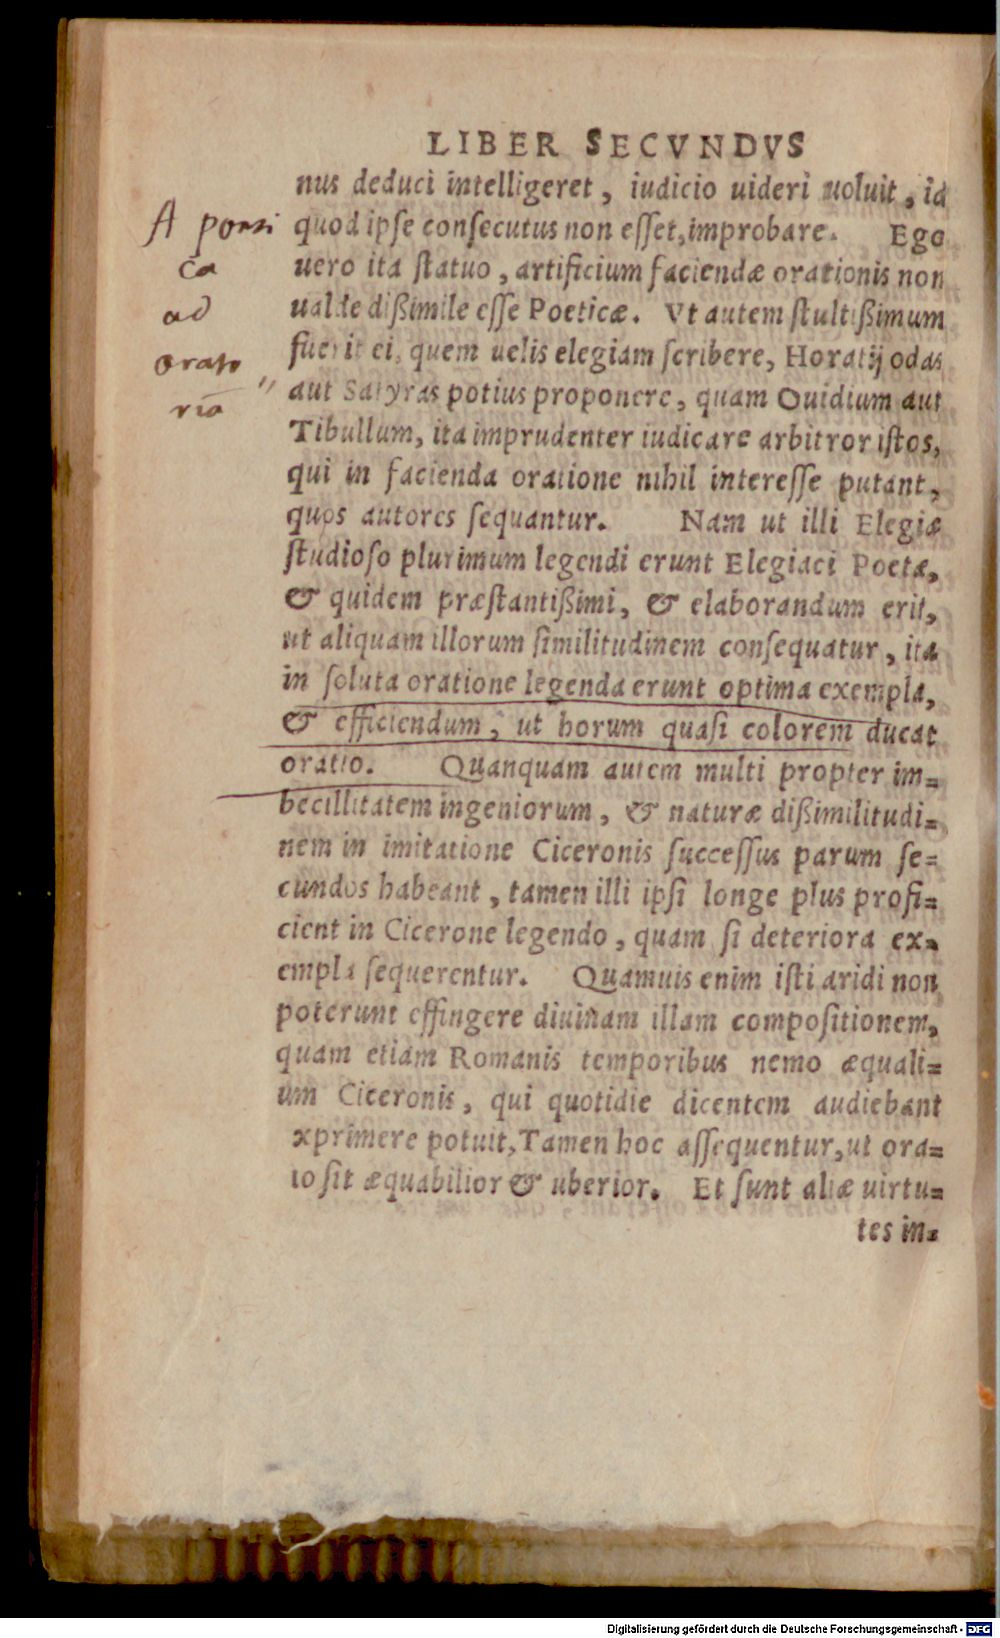 LIBER SECVNDVS
nus deduci intelligeret, iudicio uideri uoluit, id
quod ipſe conſecutus non eſſet, improbare. Ego
uero ita ſtatuo, artificium faciendæ orationis non
ualde dißimile eſſe Poeticæ. Vt autem ſtultißimum
fuerit ei, quem uelis elegiam ſcribere, Horatij odas
aut Satyras potius proponere, quam Ouidium aut
Tibullum, ita imprudenter iudicare arbitror iſtos,
qui in facienda oratione nihil intereſſe putant,
quos autores ſequantur. Nam ut illi Elegiæ
ſtudioſo plurimum legendi erunt Elegiaci Poetæ,
& quidem præſtantißimi, & elaborandum erit,
ut aliquam illorum ſimilitudinem conſequatur, ita
in ſoluta oratione legenda erunt optima exempla,
& efficiendum, ut horum quaſi colorem ducat
oratio. Quanquam autem multi propter im=
becillitatem ingeniorum, & naturæ dißimilitudi=
nem in imitatione Ciceronis ſucceſſus parum ſe=
cundos habeant, tamen illi ipſi longe plus profi=
cient in Cicerone legendo, quam ſi deteriora ex=
empla ſequerentur. Quamuis enim iſti aridi non
poterunt effingere diuinam illam compoſitionem,
quam etiam Romanis temporibus nemo æquali=
um Ciceronis, qui quotidie dicentem audiebant
xprimere potuit, Tamen hoc aſſequentur, ut ora=
io ſit æquabilior & uberior. Et ſunt aliæ uirtu=
tes in=
A poeti
ca
ad
orato
ria
Digitalisierung gefördert durch die Deutsche Forschungsgemeinschaft - DFG